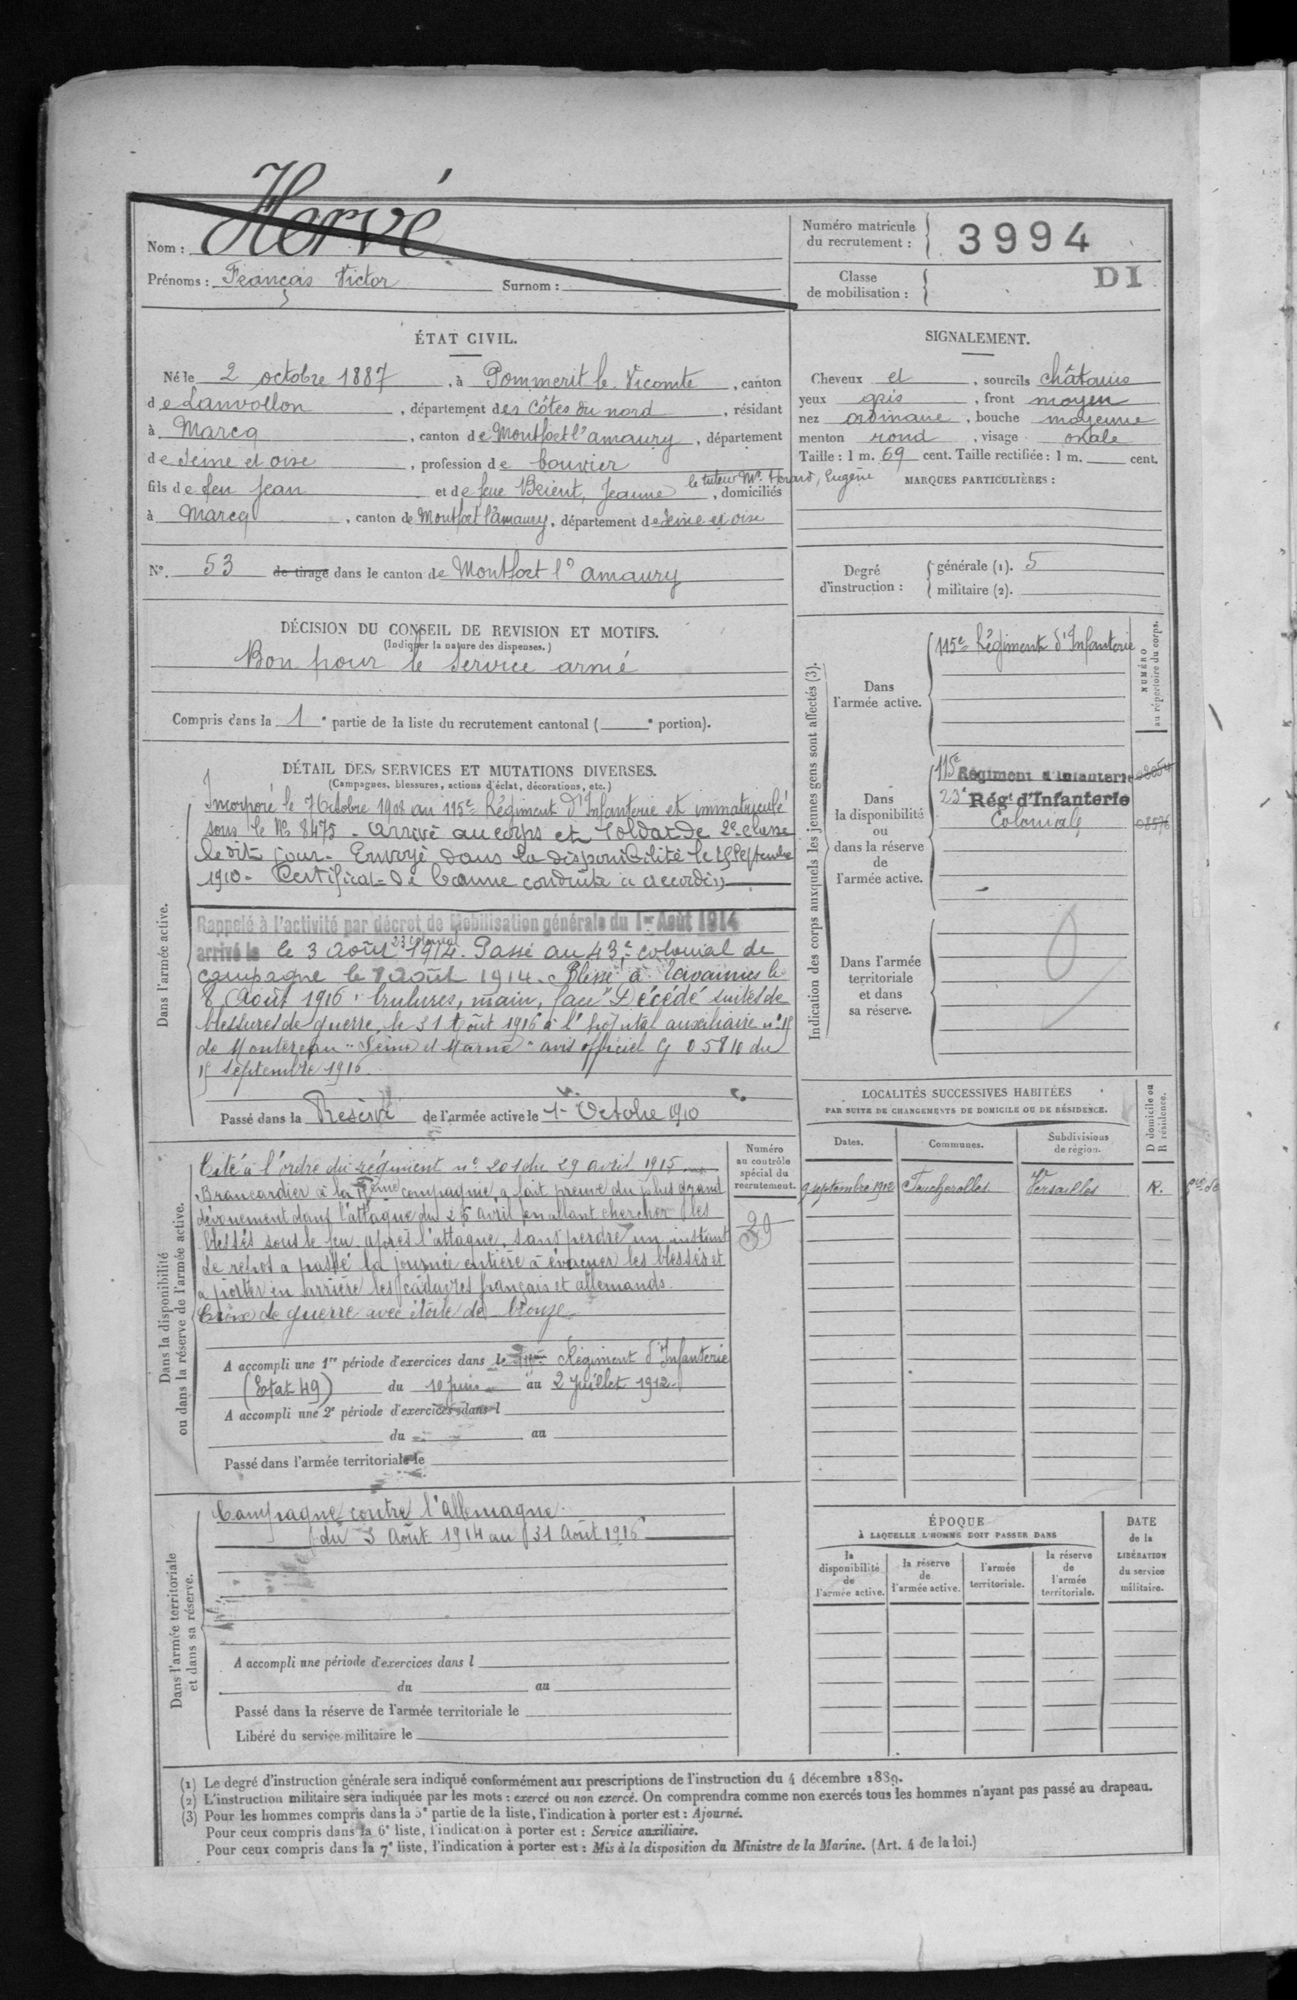 Nom : Hervé
Prénoms : François Victor Surnom :
Numéro matricule
du recrutement : 3994
Classe
de mobilisation :
DI
ÉTAT CIVIL.
Né le 2 octobre 1887, à Pommerit le Vicomte, canton
de Lanvollon, département des Côtes du nord, résidant
à Marcq, canton de Montfort l'amaury, département
de Seine et oise, profession de bouvier
fils de feu Jean et de feue Brient, Jeanne le tuteur Mr. Herard, Eugène, domiciliés
à Marcq, canton de Montfort l'amaury, département de Seine et oise
N°. 53 de tirage dans le canton de Montfort l'amaury
DÉCISION DU CONSEIL DE REVISION ET MOTIFS.
(Indiquer la nature des dispenses.)
Bon pour le service armé
Compris dans la 1e partie de la liste du recrutement cantonal ( e portion).
SIGNALEMENT.
Cheveux et, sourcils châtains
yeux gris, front moyen
nez ordinaire, bouche moyenne
menton rond, visage ovale
Taille : 1 m. 69 cent. Taille rectifiée : 1 m. cent.
MARQUES PARTICULIÈRES :
Degré
d'instruction :
générale (1). 5
militaire (2).
DÉTAIL DES SERVICES ET MUTATIONS DIVERSES.
(Campagnes, blessures, actions d'éclat, décorations, etc.)
Dans l'armée active.
Incorporé le 7 Octobre 1908 au 115e Régiment d'Infanterie et immatriculé
sous le No 8475 - Arrivé au corps et soldat de 2e classe
le dit jour - Envoyé dans la disponibilité le 25 Septembre
1910 - Certificat de bonne conduite "accordé"
Rappelé à l'activité par décret de Mobilisation générale du 1er Août 1914
arrivé le le 3 Août 1914. 23 Colonial Passé au 43e colonial de
campagne le 7 Août 1914. Blessé à
8 Août 1916 "brulures, main, face" Décédé suites de
blessures de guerre, le 31 Août 1916 à l'hôpital auxiliaire n°
de Montereau "Seine et Marne" avis officiel G 05810 du
15 septembre 1916.
Passé dans la Réserve de l'armée active le 1er Octobre 1910
Indication des corps auxquels les jeunes gens sont affectés (3).
NUMÉRO
au répertoire du corps.
Dans
l'armée active.
115e Régiment d'Infanterie
Dans
la disponibilité
ou
dans la réserve
de
l'armée active.
115e Régiment d'Infanterie
23e Régt d'Infanterie
Coloniale 08576
Dans l'armée
territoriale
et dans
sa réserve.
Dans la disponibilité
ou dans la réserve de l'armée active.
Cité à l'ordre du régiment n° 201 du 29 avril 1915
Brancardier à la compagnie, a fait preuve du plus grand
dévouement dans l'attaque du 25 avril en allant chercher les
blessés sous le feu. après l'attaque, sans perdre un instant
de repos a passé la journée entière à évacuer les blessés et
a porter en arrière les cadavres français et allemands.
Croix de guerre avec étoile de bronze.
Numéro
au contrôle
spécial du
recrutement.
A accompli une 1re période d'exercices dans le Régiment d'Infanterie
(Etat 49) du 10 juin au 2 juillet 1912
A accompli une 2e période d'exercices dans l
du au
Passé dans l'armée territoriale le
LOCALITÉS SUCCESSIVES HABITÉES
PAR SUITE DE CHANGEMENTS DE DOMICILE OU DE RÉSIDENCE.
D domicile ou
R résidence.
Dates. Communes. Subdivisions
de région.
9 septembre 1912 Foucherolles Versailles R.
Dans l'armée territoriale
et dans sa réserve.
Campagne contre l'Allemagne
du 3 Août 1914 au 31 Août 1916
A accompli une période d'exercices dans l
du au
Passé dans la réserve de l'armée territoriale le
Libéré du service militaire le
ÉPOQUE
À LAQUELLE L'HOMME DOIT PASSER DANS
la
disponibilité
de
l'armée active.
la réserve
de
l'armée active.
l'armée
territoriale.
la réserve
de
l'armée
territoriale.
DATE
de la
LIBÉRATION
du service
militaire.
(1) Le degré d'instruction générale sera indiqué conformément aux prescriptions de l'instruction du 4 décembre 1889.
(2) L'instruction militaire sera indiquée par les mots : exercé ou non exercé. On comprendra comme non exercés tous les hommes n'ayant pas passé au drapeau.
(3) Pour les hommes compris dans la 5e partie de la liste, l'indication à porter est : Ajourné.
Pour ceux compris dans la 6e liste, l'indication à porter est : Service auxiliaire.
Pour ceux compris dans la 7e liste, l'indication à porter est : Mis à la disposition du Ministre de la Marine. (Art. 4 de la loi.)